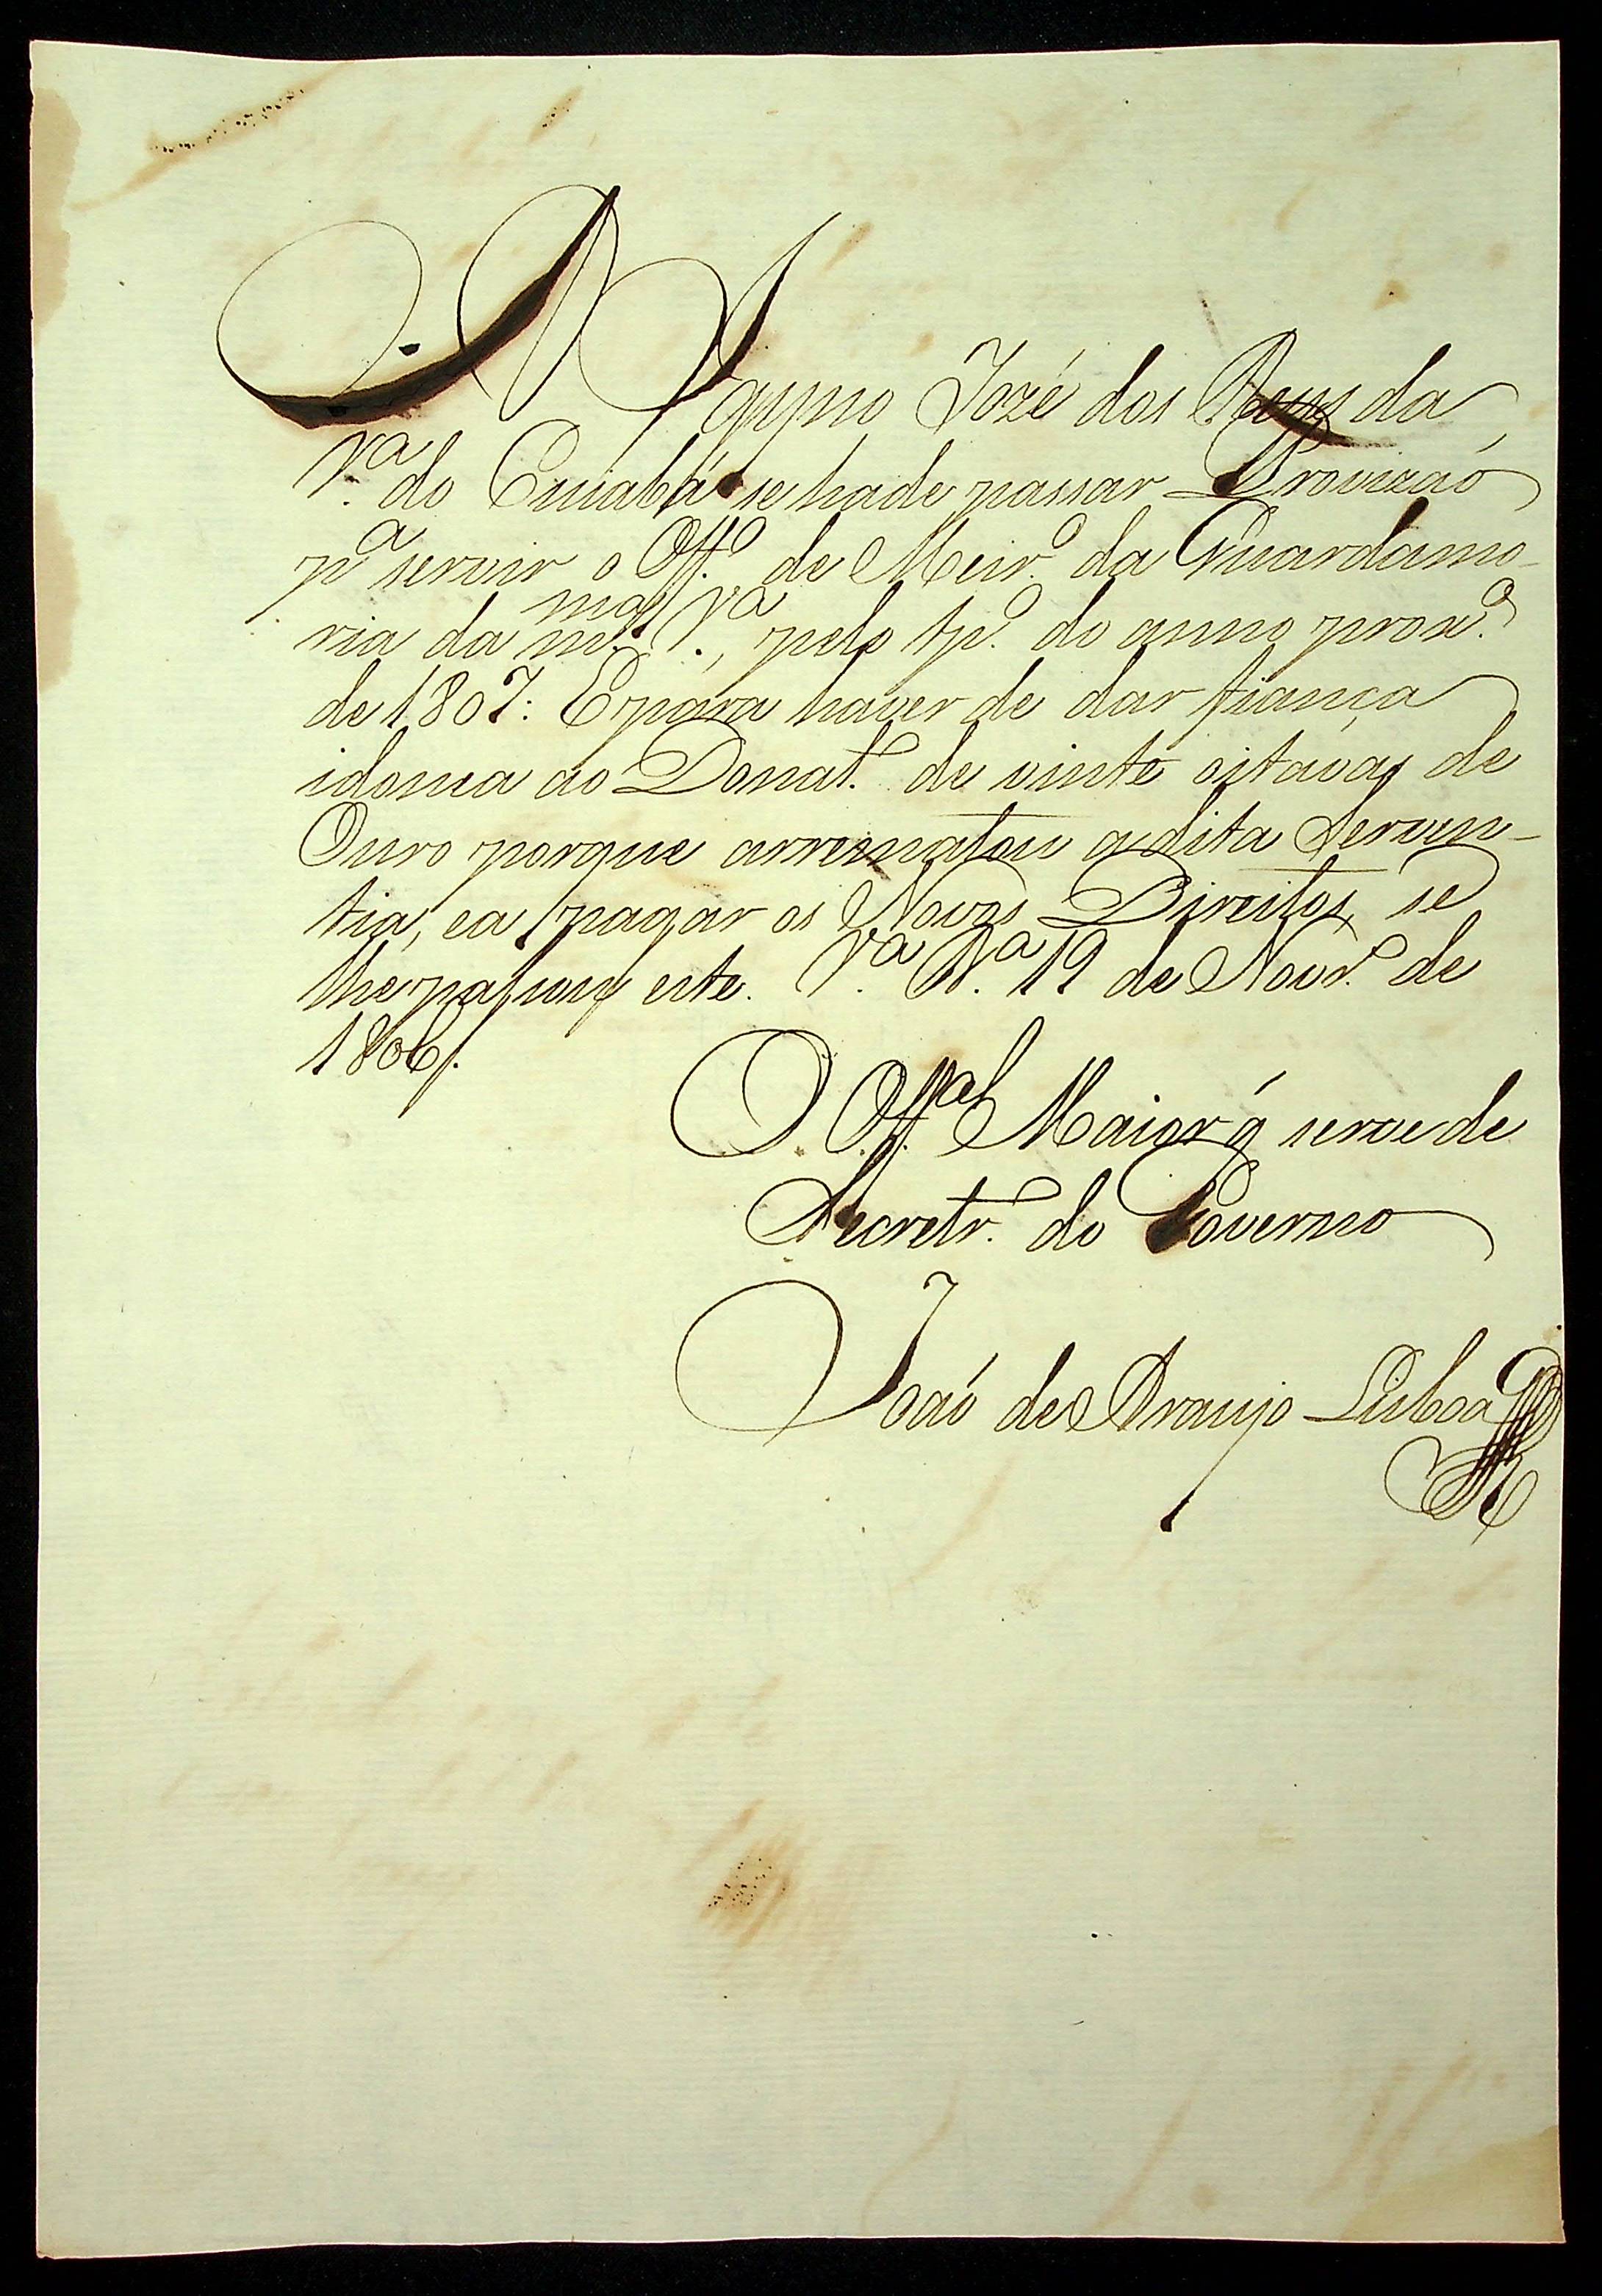 A Igypio Jozé dos Reys da
V.ª do Cuiabá se hade passar Provizaõ
p.ª servir o Off.º de Meir.º da Guardamo-
ria da m.ma V.ª, pelo tp.º do anno prox.º
de 1807: E para haver de dar fiança
idonea ao Donat.º de vinte oitavas de
Ouro porque arrematou a dita Serven-
tia, e a pagar os Novos Direitos, se
lhe passou este. V.ª B.ª 19 de Novr.º de
1806.
O Off.al Maior q̃ serve de
Secretr.º do Governo
Joaõ de Araujo Lisboa